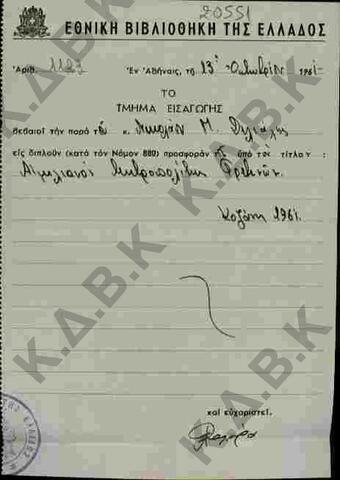 20551
ΕΘΝΙΚΗ ΒΙΒΛΙΟΘΗΚΗ ΤΗΣ ΕΛΛΑΔΟΣ
Ἀριθ. 1123 Ἐν Ἀθήναις, τῇ 13 Ὀκτωβρίου 1961
ΤΟ
ΤΜΗΜΑ ΕΙΣΑΓΩΓΗΣ
βεβαιοῖ τὴν παρὰ τοῦ κ. Νικολάου Π. Δελιαλῆ
εἰς διπλοῦν (κατὰ τὸν Νόμον 880) προσφορὰν τῆς ὑπὸ τὸν τίτλον :
Αἰμιλιανὸς Μητροπολίτης Γρεβενῶν
Κοζάνη 1961.
Κ.Δ.Β.Κ
Κ.Δ.Β.Κ
Κ.Δ.Β.Κ
καὶ εὐχαριστεῖ.